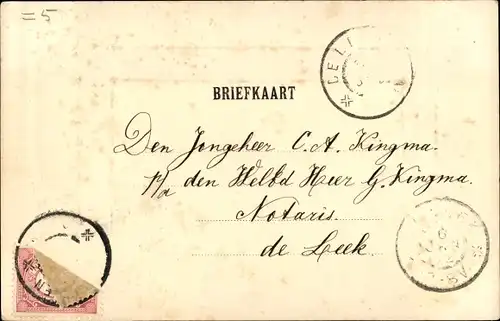 = 5
BRIEFKAART
Den Jongeheer C. A. Kingma.
p/a den Welbd Heer G. Kingma.
Notaris.
de Leek